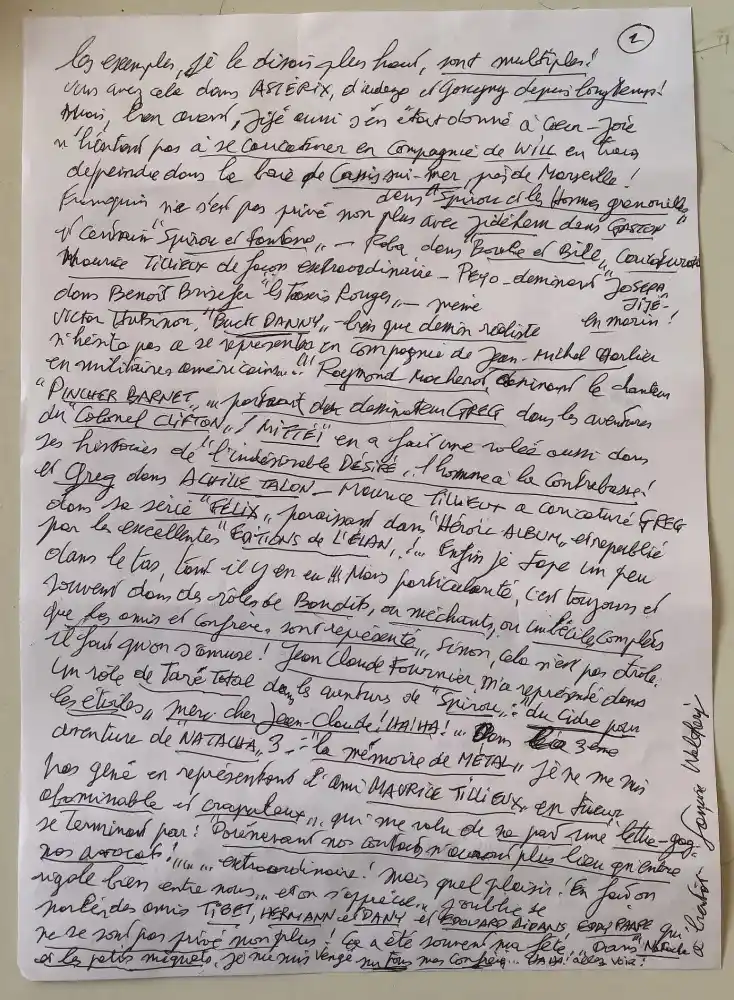 1
les exemples, je le disais plus haut, sont multiples!
vous avez cela dans ASTÉRIX, d'uderzo et Goscyny depuis longtemps!
Mais, bien avant, Jijé aussi s'en était donné à Cœur-Joie
n'hésitant pas à se caricaturer en Compagnie de WILL en
dans la baie de Cassis-sur-Mer, près de Marseille!
dans "Spirou et les Hommes grenouilles"
Franquin ne s'est pas privé non plus avec Jidéhem dans GASTON
et certains "Spirou et Fantasio" — Roba dans "Boule et Bill"
Maurice TILLIEUX de façon extraordinaire — PEYO dessinant JOSEPH
dans Benoît Brisefer "les Taxis Rouges" — même JIJÉ
Victor Hubinon, "BUCK DANNY" bien que dessin réaliste en marin!
n'hésita pas à se représenter en Compagnie de Jean-Michel Charlier
en militaires américains..!!! Raymond Macherot, dessinant le chanteur
"PINCHER BARNET" dessinateur GREG dans les aventures
du "Colonel CLIFTON"! "MITTÉÏ" en a fait une volée aussi dans
ses histoires de "l'indésirable DÉSIRÉ", l'homme à la Contrebasse!
et Greg dans ACHILLE TALON — Maurice TILLIEUX a caricaturé GREG
dans sa série "FÉLIX" paraissant dans "Héroïc ALBUM" et republié
par les excellentes "ÉDITIONS de L'ÉLAN"!... Enfin je tape un peu
dans le tas, tant il y en eu!!! Mais particularité, c'est toujours et
souvent dans des rôles de Bandits, ou méchants, ou imbéciles complets
que les amis et confrères sont représenté... Sinon, cela n'est pas drôle.
il faut qu'on s'amuse! Jean Claude Fournier m'a représenté dans
un rôle de Taré total dans les aventures de "Spirou" : "du Cidre pour
les étoiles" merci cher Jean-Claude! HA! HA!... Dans la 3ème
aventure de "NATACHA" 3 : "la mémoire de METAL" je ne me suis
pas gêné en représentant l'ami MAURICE TILLIEUX en tueur
abominable et crapuleux... qui me valu de sa part une lettre-gag
se terminant par : "Dorénavant nos contacts n'auront plus lieu qu'entre
nos avocats!"... extraordinaire! Mais quel plaisir! En fait on
rigole bien entre nous... et on s'apprécie... J'oublie de
des amis TIBET, HERMANN et DANY et EDOUARD AIDANS, EDDY PAAPE qui
ne se sont pas privé non plus! Ça a été souvent ma fête. Dans "Natacha
et les petits miquets" je me suis vengé sur tous mes Confrères... HA HA! allez voir!
à bientôt François Walthéry